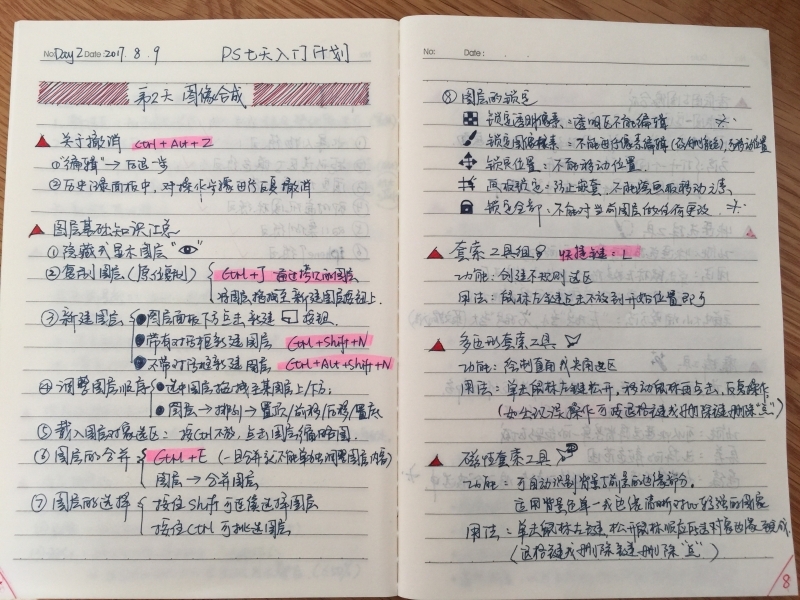 No: Day 2 Date: 2017. 8. 9 PS七天入门计划
第2天 图像合成
关于撤消 Ctrl + Alt + Z
①"编辑"→后退一步
②历史记录面板中,对操作步骤进行点击撤消
图层基础知识汇总
①隐藏或显示图层"👁"
②复制图层(原位复制) Ctrl+J 通过拷贝的图层
将图层拖拽至新建图层按钮上.
③新建图层 ●图层面板下方点击新建 按钮.
●带有对话框新建图层 Ctrl+Shift+N
●不带对话框新建图层 Ctrl+Alt+Shift+N
④调整图层顺序 ●选中图层拖拽至某图层上/下方;
●图层→排列→置顶/前移/后移/置底
⑤载入图层对象选区:按Ctrl不放,点击图层缩略图.
⑥图层的合并 Ctrl+E (一旦合并就不能单独调整图层内容)
图层→合并图层
⑦图层的选择 按住Shift可连续选择图层
按住Ctrl可挑选图层
No: Date:
⑧图层的锁定
锁定透明像素:透明区不能编辑
锁定图像像素:不能进行像素编辑 移动位置
锁定位置:不能移动位置
画板锁定:防止嵌套,不能跨画板移动元素
锁定全部:不能对当前图层做任何更改.
套索工具组 快捷键:L
功能:创建不规则选区
用法:鼠标左键点击不放到开始位置即可
多边形套索工具
功能:绘制直角或夹角选区
用法:单击鼠标左键松开,移动鼠标再点击,反复操作
(如出现误操作可按退格键或删除键删除"点")
磁性套索工具
功能:可自动识别背景与前景的边缘部分.
适用背景色单一或边缘清晰对比较强的图像
用法:单击鼠标左键,松开鼠标顺应所选对象边缘
(退格键或删除键删除"点")
8